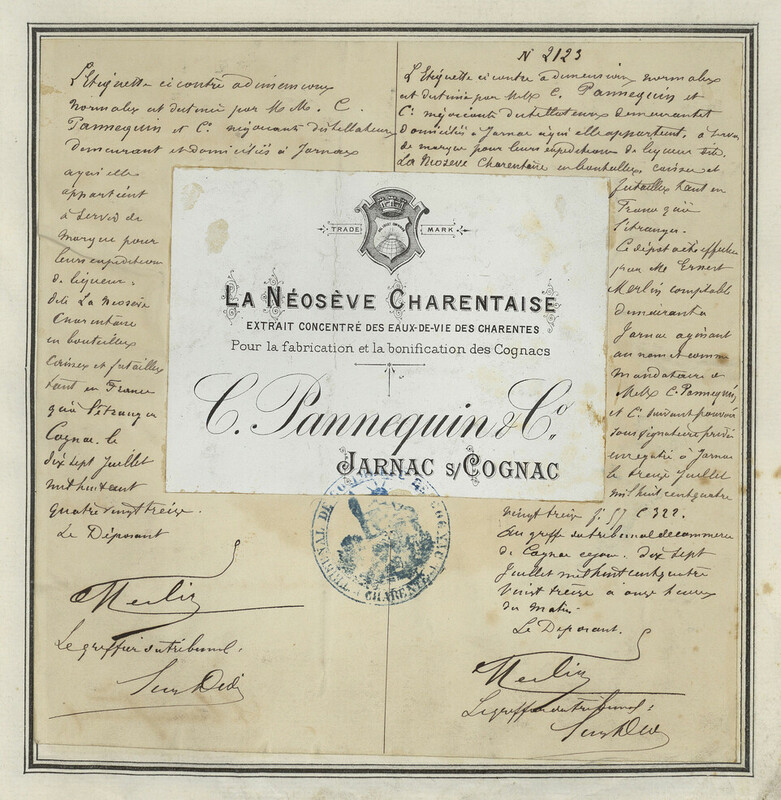 N 2123
L'Etiquette ci contre a dimensions
normales est destinée par M M. C.
Pannequin et Cie négociants distillateurs
demeurant et domiciliés à Jarnac
à qui elle
appartient
à servir de
marque pour
leurs expéditions
de liqueur
dite La Néosève
Charentaise
en bouteilles
caisses et futailles
tant en France
qu'à l'étranger
Cognac le
dix sept Juillet
mil huit cent
quatre vingt treize.
Le Déposant
Merlin
Le greffier du tribunal.
L'Etiquette ci contre a dimensions normales
est destinée par MM. C. Pannequin et
Cie négociants distillateurs demeurant et
domiciliés à Jarnac à qui elle appartient, à servir
de marque pour leurs expéditions de liqueur dite
La Néosève Charentaise en bouteilles, caisses et
futailles tant en
France qu'à
l'étranger.
Ce dépôt a été effectué
par Mr Ernest
Merlin comptable
demeurant à
Jarnac agissant
au nom et comme
mandataire de
MM. C. Pannequin
et Cie suivant pouvoir
sous signature privée
enregistré à Jarnac
le treize Juillet
mil huit cent quatre
vingt treize
Au greffe du tribunal de commerce
de Cognac ce jour dix sept
Juillet mil huit cent quatre
vingt treize a onze heures
du matin.
Le Déposant.
Merlin
Le greffier du tribunal:
TRADE MARK
LA NÉOSÈVE CHARENTAISE
EXTRAIT CONCENTRÉ DES EAUX-DE-VIE DES CHARENTES
Pour la fabrication et la bonification des Cognacs
C. Pannequin & Co
JARNAC S/COGNAC
TRIBUNAL DE COMMERCE DE COGNAC
CHARENTE